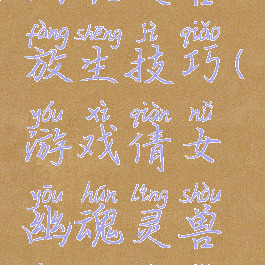 fàng shēng jì qiǎo
放生技巧(
yóu xì qiàn nǚ
游戏倩女
yōu hún líng shòu
幽魂灵兽